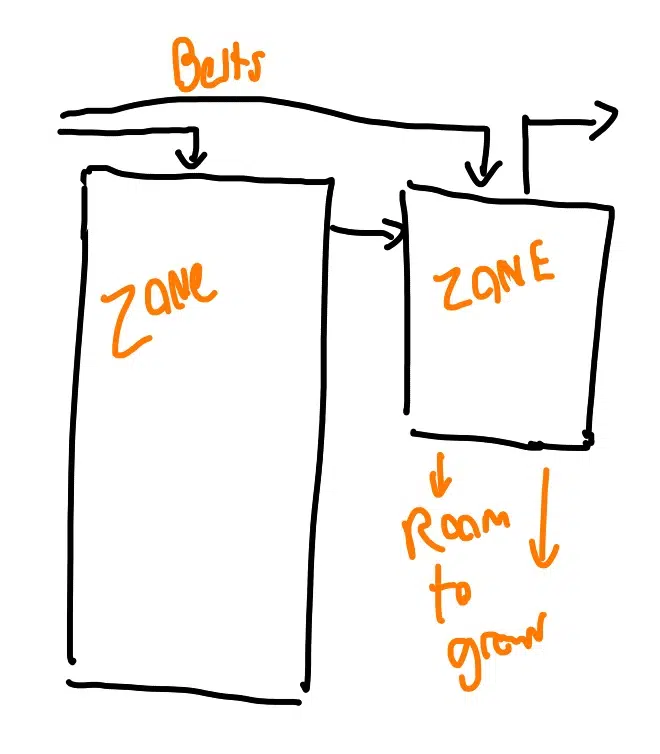 Belts
Zone
ZONE
Room
to
grow